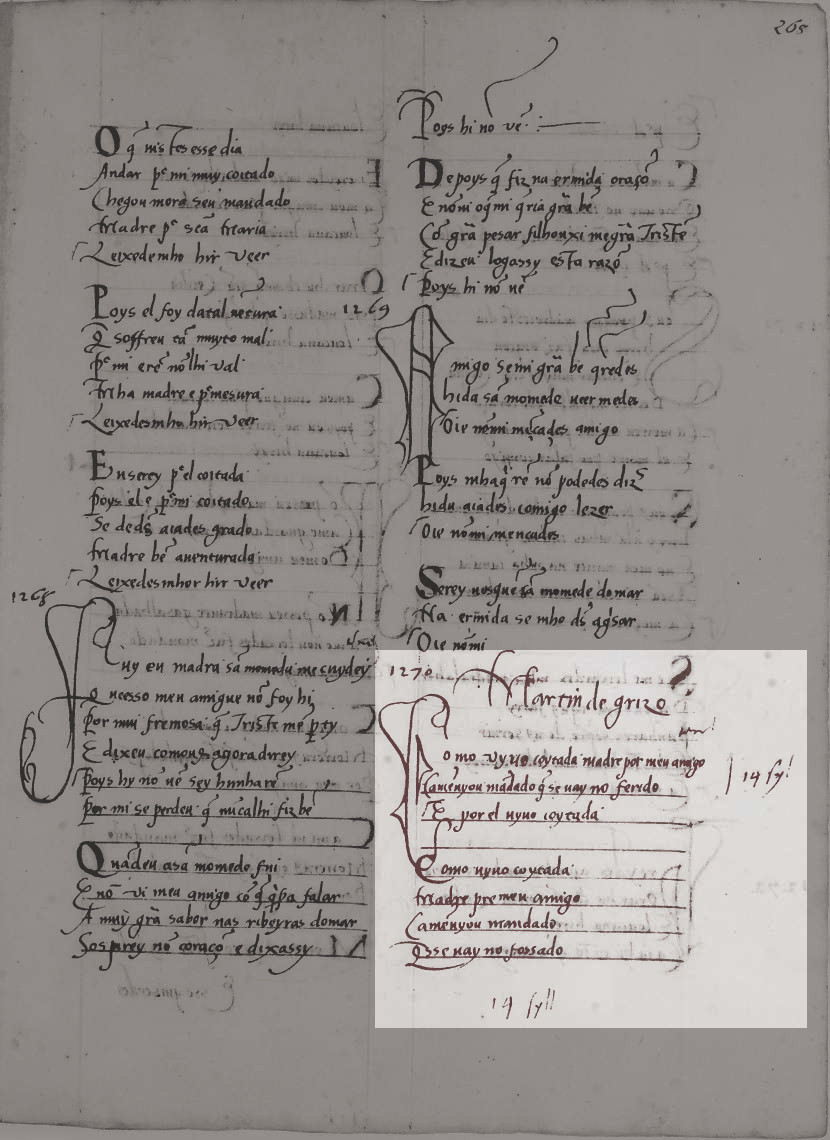 265
O q̃ uistes esse dia
Andar p̃ mi muy coitado
Chegoumora seu mandado
Madre pᵉ scã Maria
Leixedesmho hir veer
Poys el foy datal uẽtura
Q̃ soffreu tã muyto mal
Pᵉ mi e rẽ nõ lhi val
Mha madre e pᵉ mesura
Leixedesmho hir veer
Eu serey pᵉ el coitada
Poys el e pᵉ mi coitado
Se de d's aiades grado
Madre bẽ auenturada
Leixedesmhor hir veer
1268
Fuy eu madra sã momedu me cuydey
Q uẽesso meu amigue nõ foy hi
Por mui fremosa q̃ Triste me p̃ty
E dixeu comou9 agora direy
Poys hy nõ uẽ sey hunha rẽ
Por mi se perdeu q̃ nũcalhi fiz bẽ
Quãdeu a sã momede fui
E nõ vi meu amigo cõ q̃ q̃ria falar
A muy grã sabor nas ribeyras domar
Sospirey no coraçõ e dixassy
Poys hi nõ vẽ
Depoys q̃ fiz na ermida oraçõ
E nõ ui o q̃ mi q̃ria grã bẽ
Cõ grã pesar filhouxi me grã Tristẽ
E dizeu logassy esta razõ
Poys hi nõ uẽ
1269
Amigo se mi grã bẽ q̃redes
hida sã momede ueer medes
Oie nõ mi mẽcades amigo
Poys mhaq̃ rẽ nõ podedes diz̃
hidu aiades comigo lezer
Oie nõ mi mencades
Serey uosquẽ sã momede domar
Na ermida se mho d's aguisar
Oie nõmi
1270
Martin de grizo
Como vyuo coytada madre por meu amigo
Ca menuyou mãdado q̃ se uay no ferido
E por el uyuo coytada
14 syl
Como uyuo coytada
Madre pre meu amigo
Ca menuyou mandado
Q̃sse uay no fossado
14 syll